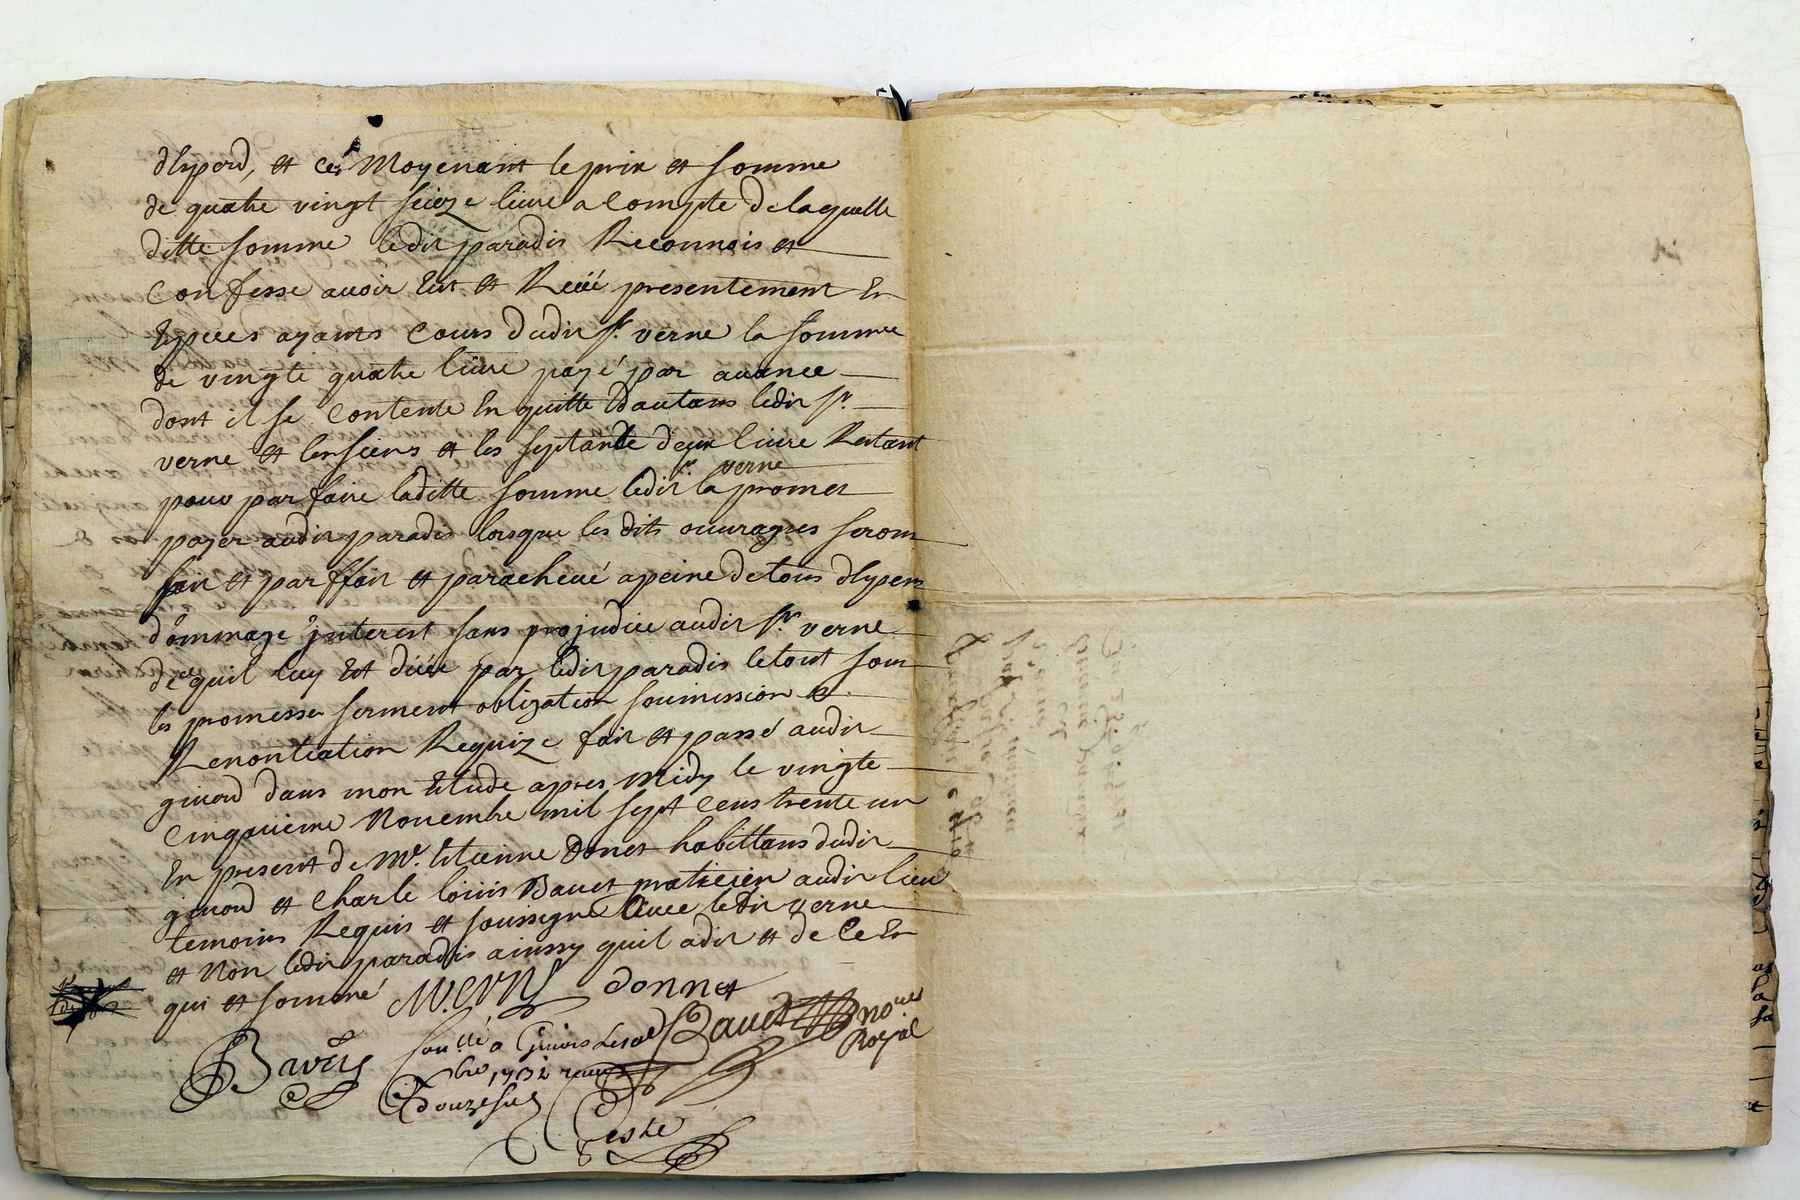 dhyperd, et ce Moyenant le prix et somme
de quatre vingt seize livre a Compte de laquelle
ditte somme ledit paradis Reconnois et
Confesse avoir Eut et Reçüe presentement En
Especes ayants Cours dudit Sr. verne la somme
de vingte quatre livre payé par avance
dont il se Contente En quitte Dautans ledit Sr.
verne et les siens et les septante deux livre Restant
pour parfaire laditte somme ledit Sr. verne la promet
payer audit paradis lorsque les dits ouvrages seront
fait et parffait et parachevé a peine de tous dhypens
dommage Jnterest sans prejudice audit Sr. verne
de ce quil luy Est düee par ledit paradis le tout sous
les promesse serment obligation soumission et
Renontiation Requize fait et passé audit
givord dans mon Etude apres midy le vingte
Cinquieme Novembre mil sept Cens trente un
En present de Me. Etienne Donet habittans dudit
givord et Charle louis Bavet praticien audit lieu
temoins Requis et soussigné avec ledit verne
et Non ledit paradis ainssy quil a dit et de Ce En
qui et sommé
donnet
Bavet
no re
Royal
a Givors
1732
douze sols